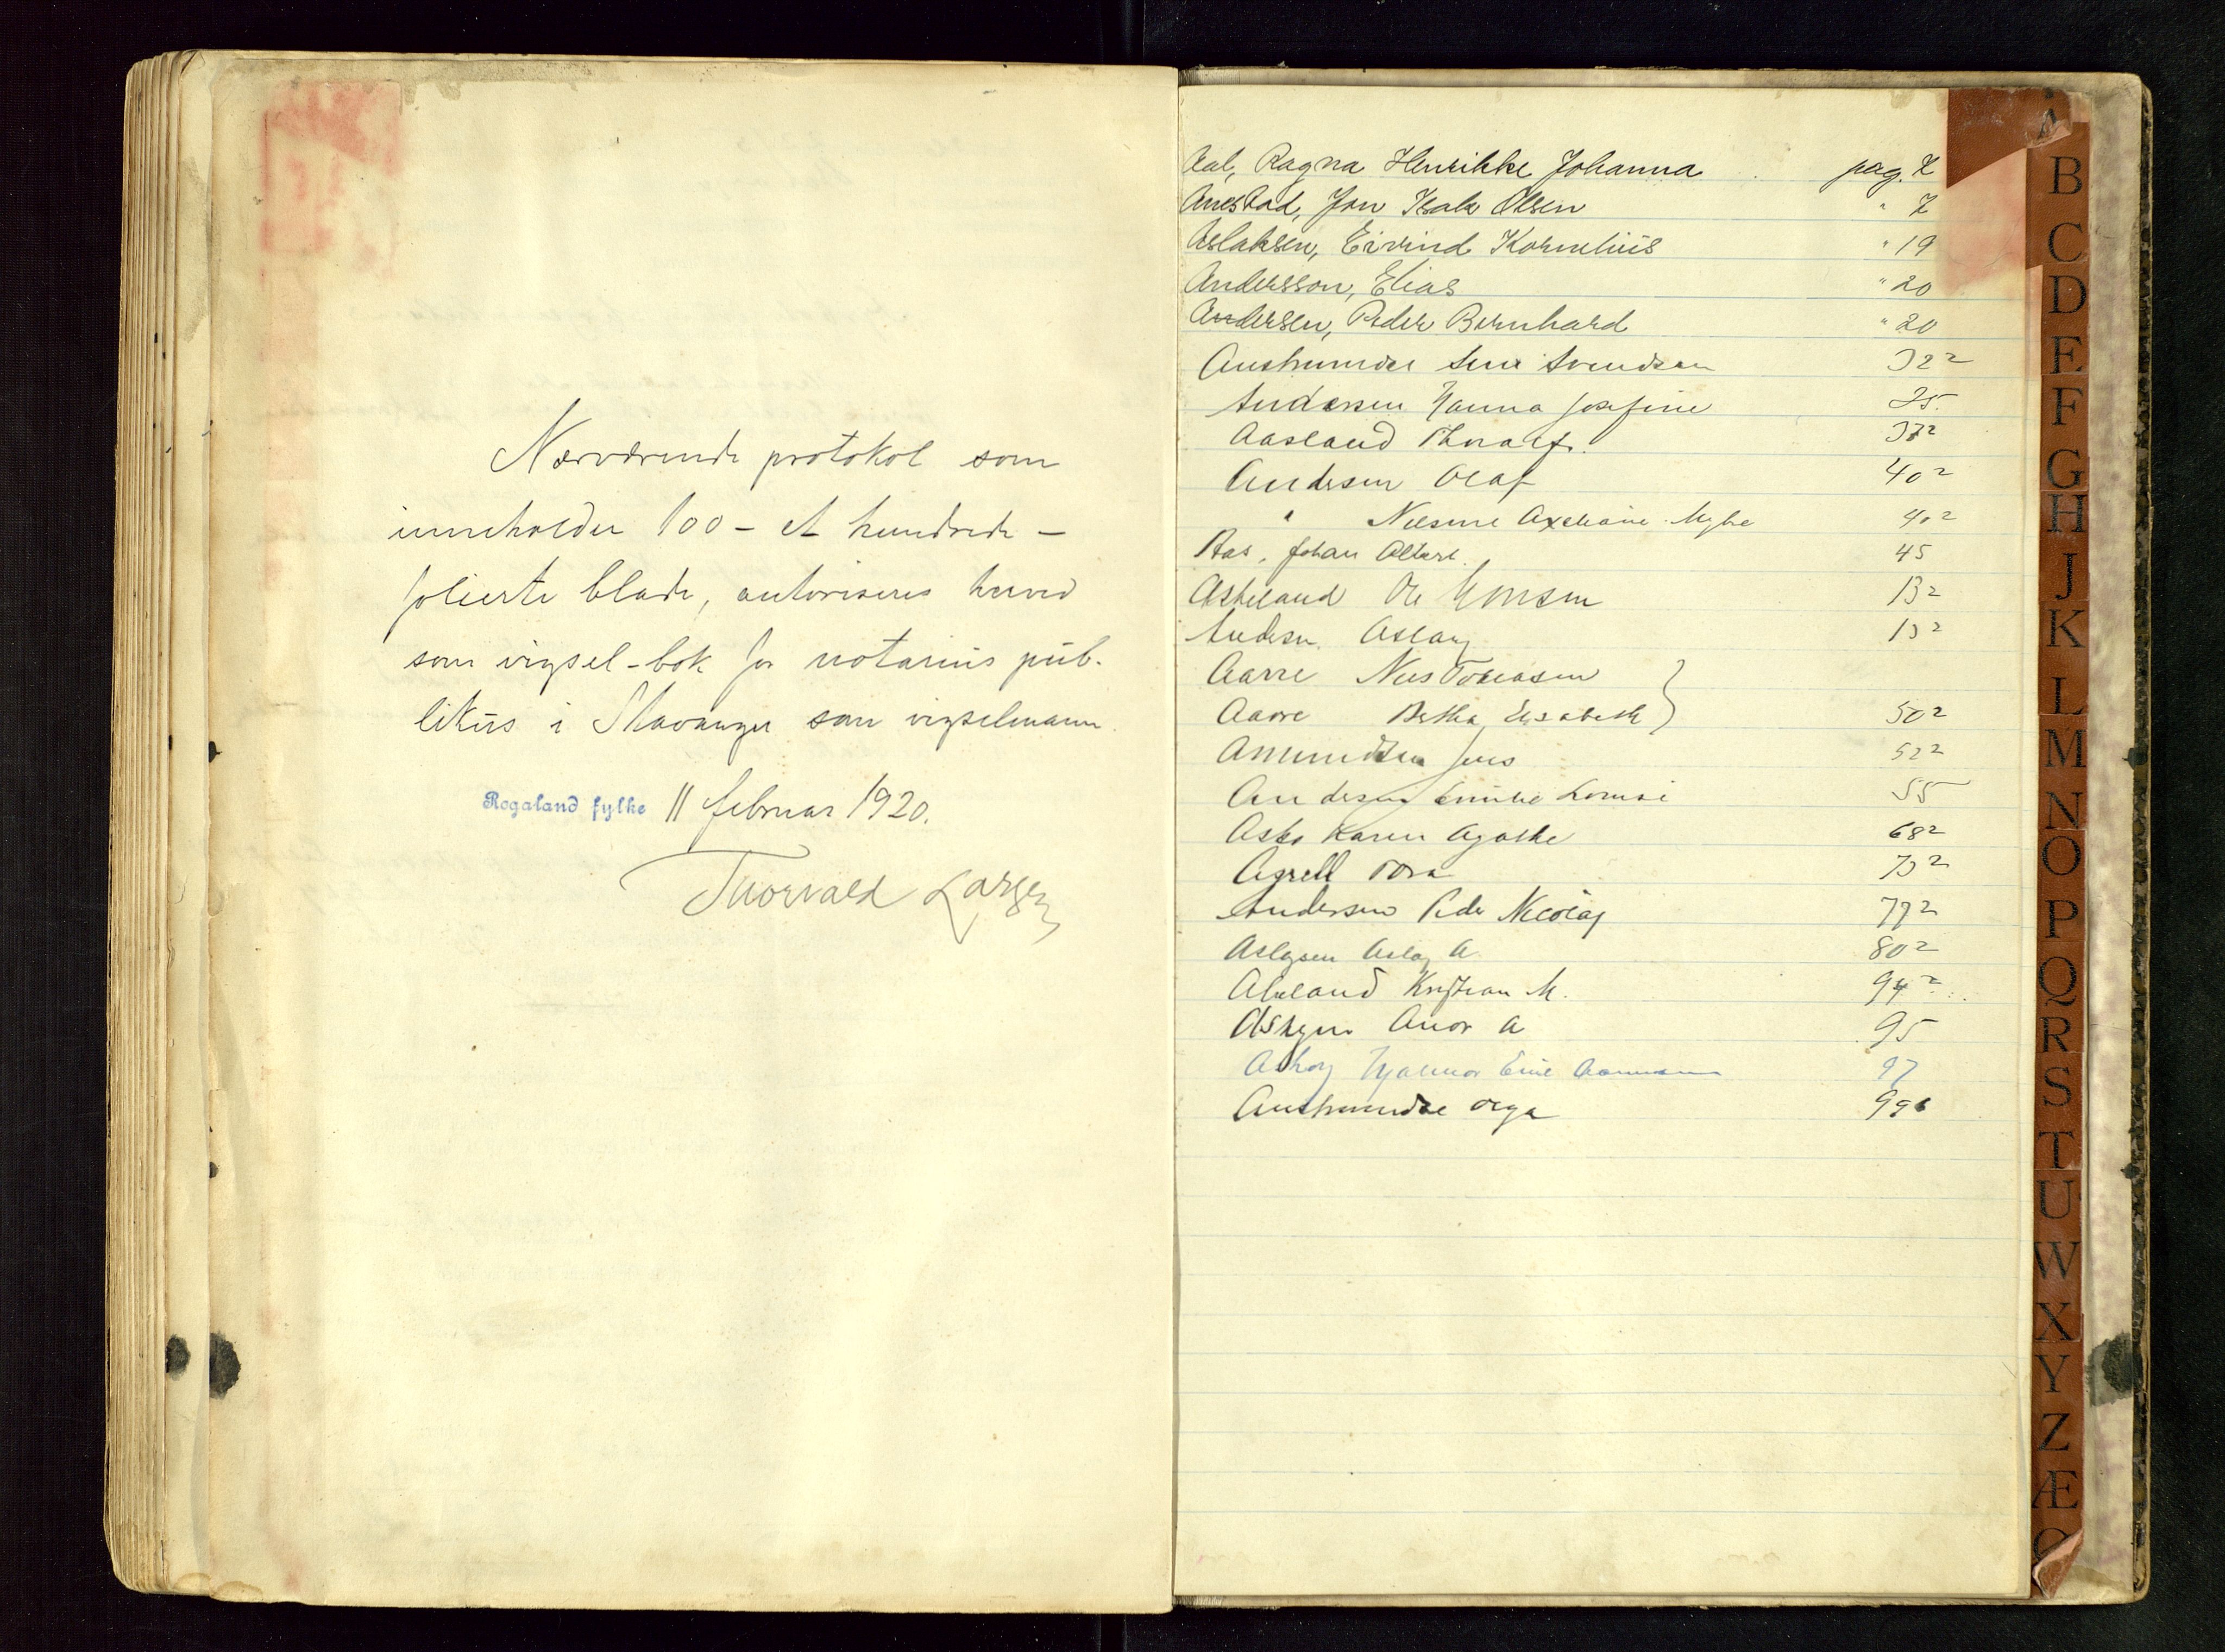 Nærværende protokol som
inneholder 100 - et hundrede -
folierte blade, autoriseres herved
som vigsel-bok for notarius pub-
likus i Stavanger som vigselmann.
Rogaland fylke 11 februar 1920.
Thorvald Larsen
Aal, Ragna Henrikke Johanna pag. 2
Anestad, Jon Isak Olsen " 7
Aslaksen, Eivind Kornelius " 19
Andersson, Elias " 20
Andersen, Peder Bernhard " 20
Austrumdal Svendsen 32²
Andersen Hanna Josefine 35
Aasland Thoralf. 37²
Andersen Olaf 40²
" Nilsine Axeliane 40²
Aas, Johan Albert 45
Askeland Ole 13²
Andersen Aslaug 13²
Aarre Nils Tobiasen
Aarre Bertha Elisabeth 50²
Amundsen Jens 52²
Andersen Emilie Lovise 55
Karen Agathe 68²
Agrell Tora 73²
Andersen Peder Nicolay 77²
Aslagsen Aslag A 80²
Kristian M. 94²
A 95
Hjalmar Emil 97
Austrumdal Olga 99
A
B
C
D
E
F
G
H
J
K
L
M
N
O
P
Q
R
S
T
U
W
X
Y
Z
Æ